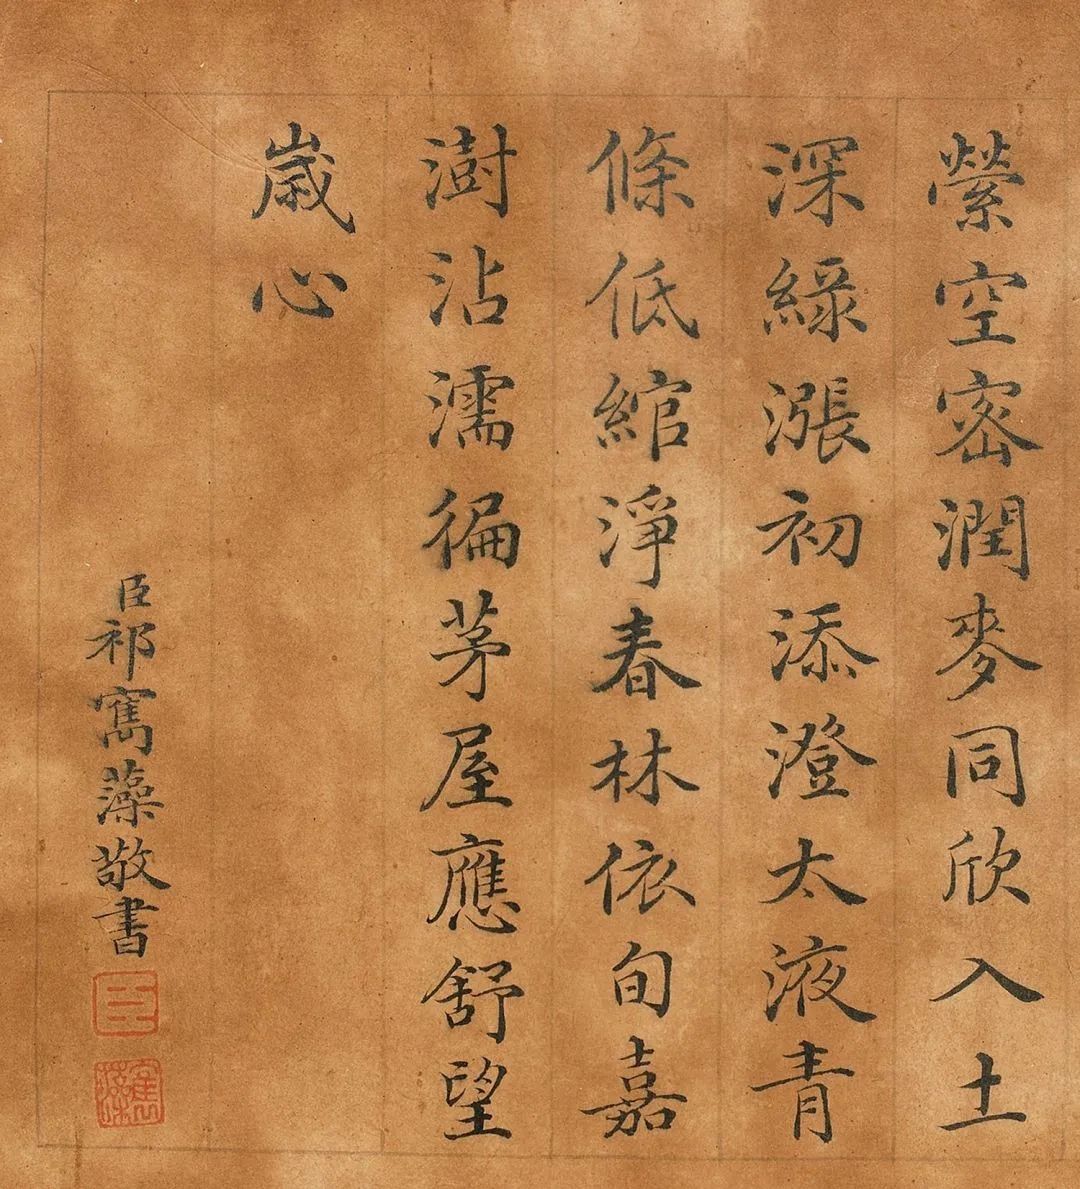 縈空密潤麥同欣入土
深綠漲初添澄太液青
條低綰淨春林依旬嘉
澍沾濡徧茅屋應舒望
歲心
臣祁寯藻敬書
臣
寯藻